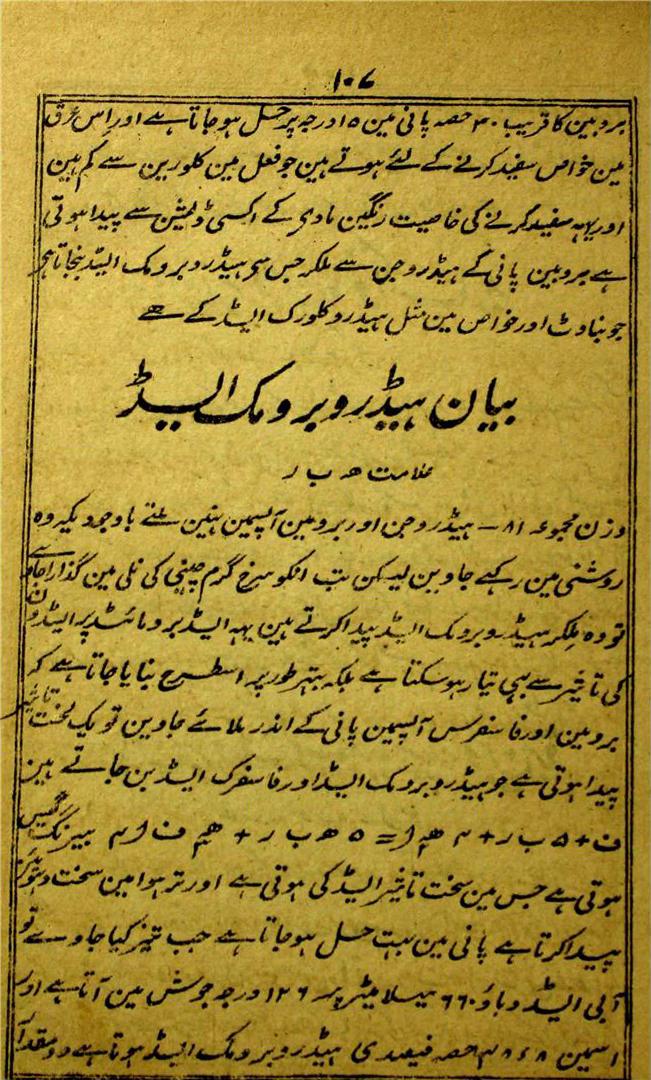 ۱۰۷
بروبین کا قریب ۴۰ حصہ پانی مین ۱۵ درجہ پر حسل ہوجاتا ہے اور اس عرق
مین خواص سفید کرنے کے لئے ہوتے ہین جو فعل مین کلورین سے کم ہین
اور یہہ سفید کرنے کی خاصیت رنگین مادی کے اکسی ڈیشن سے پیدا ہوتی
ہے بروبین پانی کے ہیڈروجن سے ملکر جس سی ہیڈروبرومک الیڈ بنجاتا ہی
جو بناوٹ اور خواص مین مثل ہیڈروکلورک الیڈ کے ہے
بیان ہیڈروبرومک الیسڈ
علامت ھ ب ر
وزن مجموعہ ۸۱ - ہیڈروجن اور برومین آپسمین نہین ملتے باوجودیکہ وہ
روشنی مین رکہے جاوین لیسکن جب انکو سرخ گرم چینی کی نلی مین گذارا جاوے
تو وہ ملکر ہیڈروبرومک الیسڈ پیدا کرتے ہین یہہ الیڈ برومائڈ پر الیڈون
کی تاثیر سے بہی تیار ہوسکتا ہے بلکہ بہتر طور پر اسطرح بنایا جاتا ہے کہ
برومین اور فاسفرس آپسمین پانی کے اندر ملائے جاوین تو یک لخت تاثیر
پیدا ہوتی ہے جو ہیڈروبرومک الیڈ اور فاسفرک الیڈ بن جاتے ہین
ف + ۵ ب ر + ۴ ھ۲ ا = ۵ ھ ب ر + ھ۳ ف ا ۴ بیرنگ گیس
ہوتی ہے جس مین سخت تاثیر الیڈ کی ہوتی ہے اور تر ہوا مین سخت دھوئین کو
پیدا کرتا ہے پانی مین بہت حسل ہوجاتا ہے جب تیز کیا جاوے تو
آبی الیڈ دباؤ ۷۶۰ میلامیٹر پر ۱۲۶ درجہ جوش مین آتا ہے اور
اسمین حصہ فیصدی ہیڈروبرومک الیڈ ہوتا ہے دو مقدار